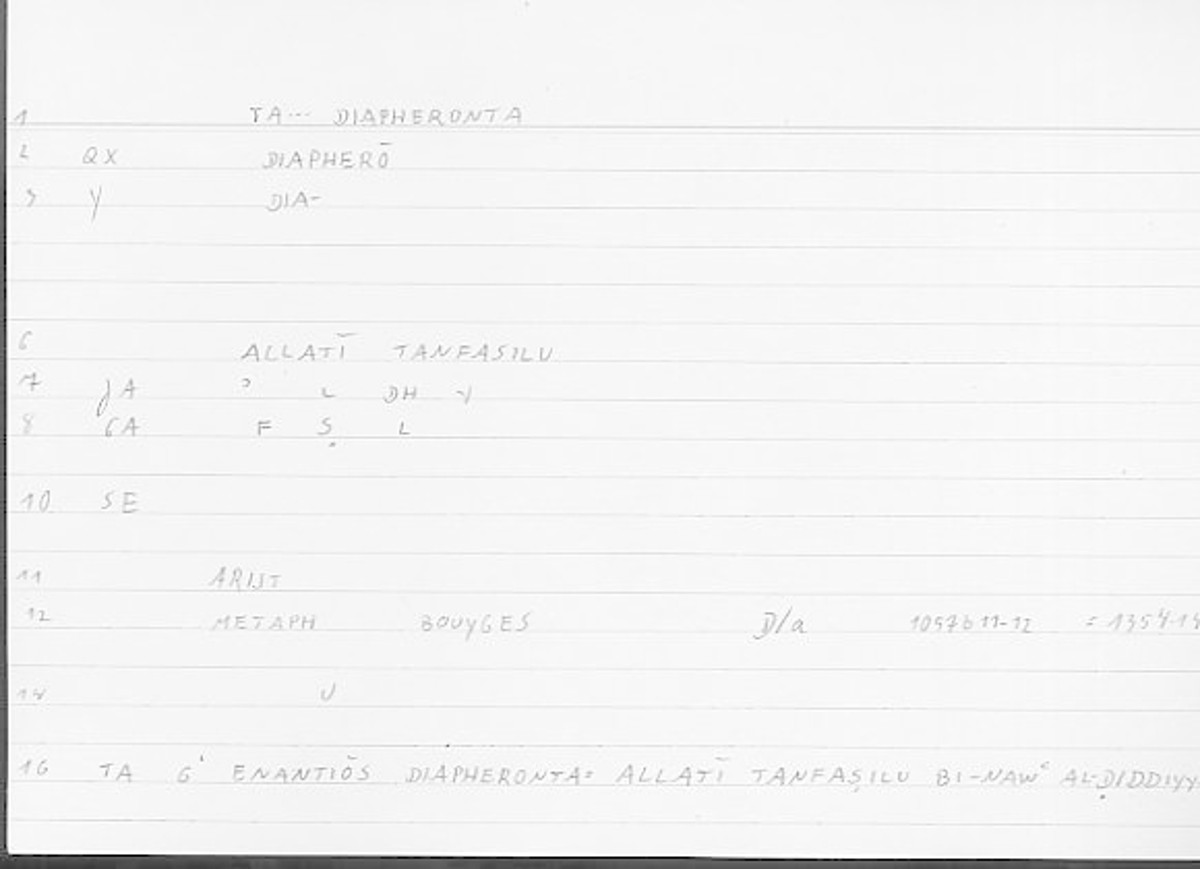 1 TA... DIAPHERONTA
2 QX DIAPHERŌ
3 Y DIA-
6 ALLATĪ TANFASILU
7 JA ʾ L DH Y
8 CA F Ṣ L
10 SE
11 ARIST
12 METAPH BOUYGES D/a 1057b11-12 = 1354.14
14 U
16 TA G' ENANTIŌS DIAPHERONTA= ALLATĪ TANFAṢILU BI-NAWʿ AL-ḌIDDIYY